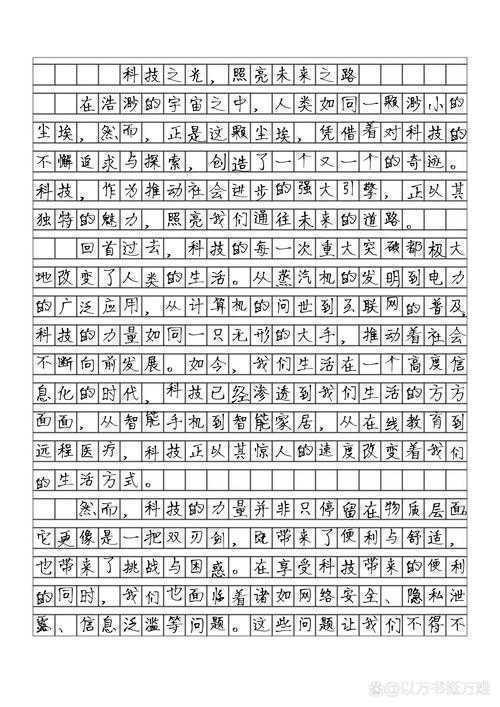 科技之光，照亮未来之路
在浩渺的宇宙之中，人类如同一颗渺小的
尘埃，然而，正是这颗尘埃，凭借着对科技的
不懈追求与探索，创造了一个又一个的奇迹。
科技，作为推动社会进步的强大引擎，正以其
独特的魅力，照亮我们通往未来的道路。
回首过去，科技的每一次重大突破都极大
地改变了人类的生活。从蒸汽机的发明到电力
的广泛应用，从计算机的问世到互联网的普及，
科技的力量如同一只无形的大手，推动着社会
不断向前发展。如今，我们生活在一个高度信
息化的时代，科技已经渗透到我们生活的方方
面面，从智能手机到智能家居，从在线教育到
远程医疗，科技正以其惊人的速度改变着我们
的生活方式。
然而，科技的力量并非只停留在物质层面
它更像是一把双刃剑，既带来了便利与舒适，
也带来了挑战与困惑。在享受科技带来的便利
的同时，我们也面临着诸如网络安全、隐私泄
露、信息泛滥等问题。这些问题让我们不得不
@以方书鉴万难